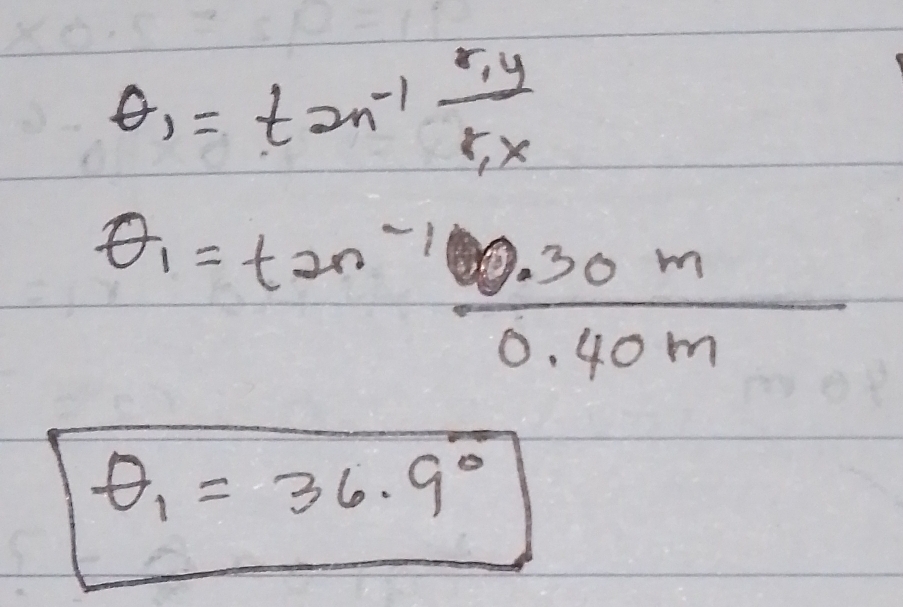 θ₁ = tan⁻¹ r₁y / r₁x
θ₁ = tan⁻¹ 0.30 m / 0.40 m
θ₁ = 36.9°